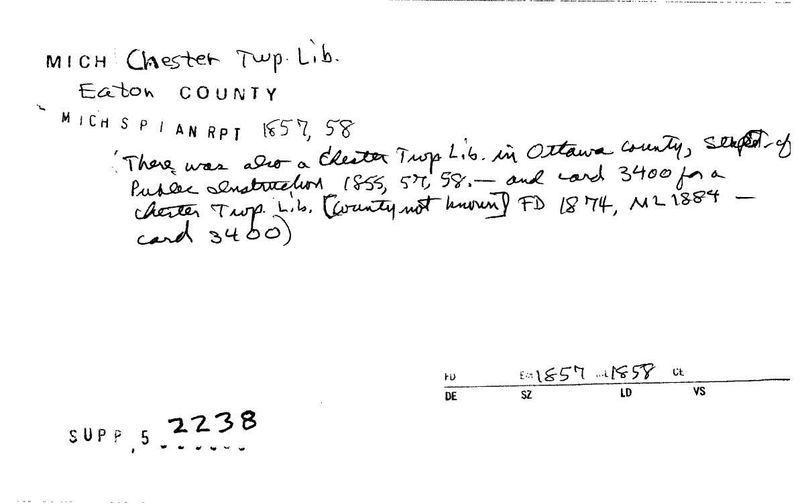 MICH Chester Twp. Lib.
Eaton COUNTY
MICH S P I AN RPT 1857, 58
(There was also a Chester Twp Lib. in Ottawa county, Supt. of
Public Instruction 1855, 57, 58. — and card 3400 for a
Chester Twp. Lib. [county not known] FD 1874, ML 1884 —
card 3400)
FD 1857 1858 CL
DE SZ LD VS
SUPP, 5 2238